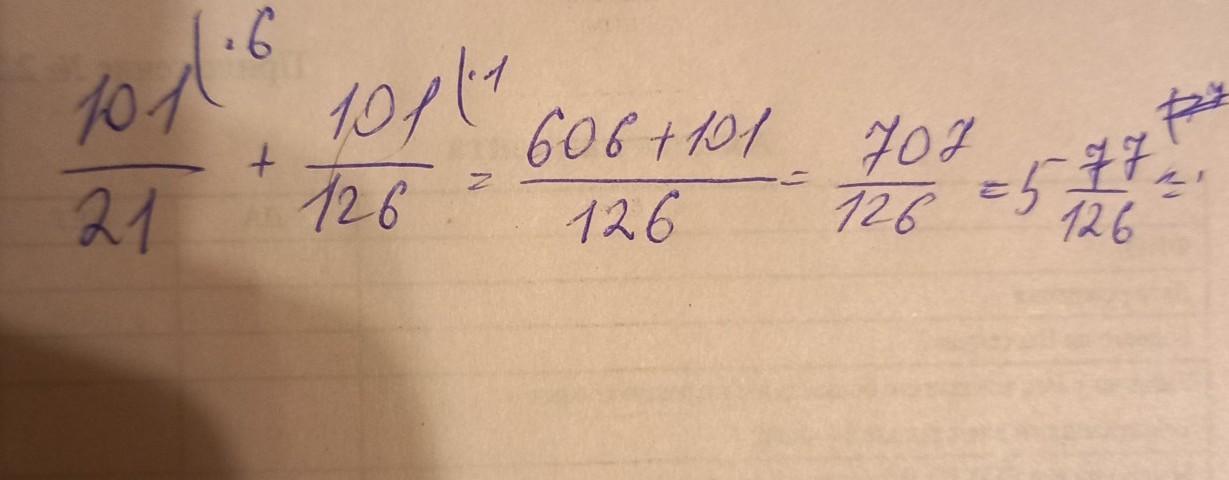 101(·6/21 + 101(·1/126 = 606+101/126 = 707/126 = 5 77/126 =